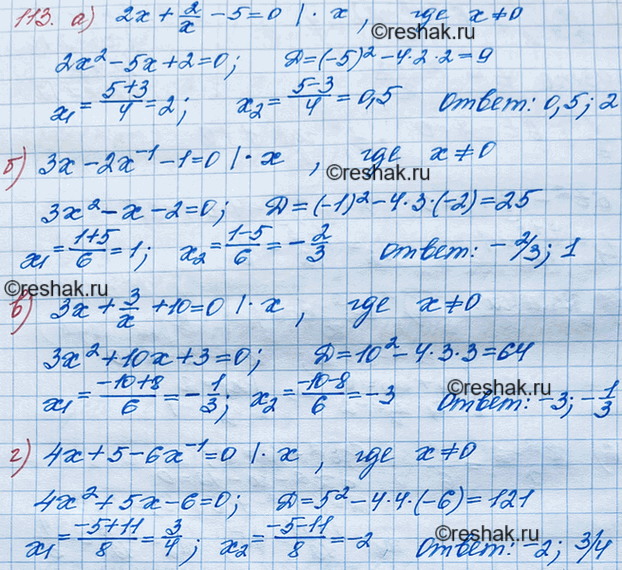 113. а) 2x + 2/x − 5 = 0 | · x, где x ≠ 0
©reshak.ru
2x² − 5x + 2 = 0; D = (−5)² − 4 · 2 · 2 = 9
x₁ = (5+3)/4 = 2; x₂ = (5−3)/4 = 0,5 ответ: 0,5; 2
б) 3x − 2x⁻¹ − 1 = 0 | · x, где x ≠ 0
©reshak.ru
3x² − x − 2 = 0; D = (−1)² − 4 · 3 · (−2) = 25
x₁ = (1+5)/6 = 1; x₂ = (1−5)/6 = −2/3 ответ: −2/3; 1
©reshak.ru
в) 3x + 3/x + 10 = 0 | · x, где x ≠ 0
3x² + 10x + 3 = 0; D = 10² − 4 · 3 · 3 = 64
x₁ = (−10+8)/6 = −1/3; x₂ = (−10−8)/6 = −3 ответ: −3; −1/3
©reshak.ru
г) 4x + 5 − 6x⁻¹ = 0 | · x, где x ≠ 0
4x² + 5x − 6 = 0; D = 5² − 4 · 4 · (−6) = 121
x₁ = (−5+11)/8 = 3/4; x₂ = (−5−11)/8 = −2 ответ: −2; 3/4
©reshak.ru